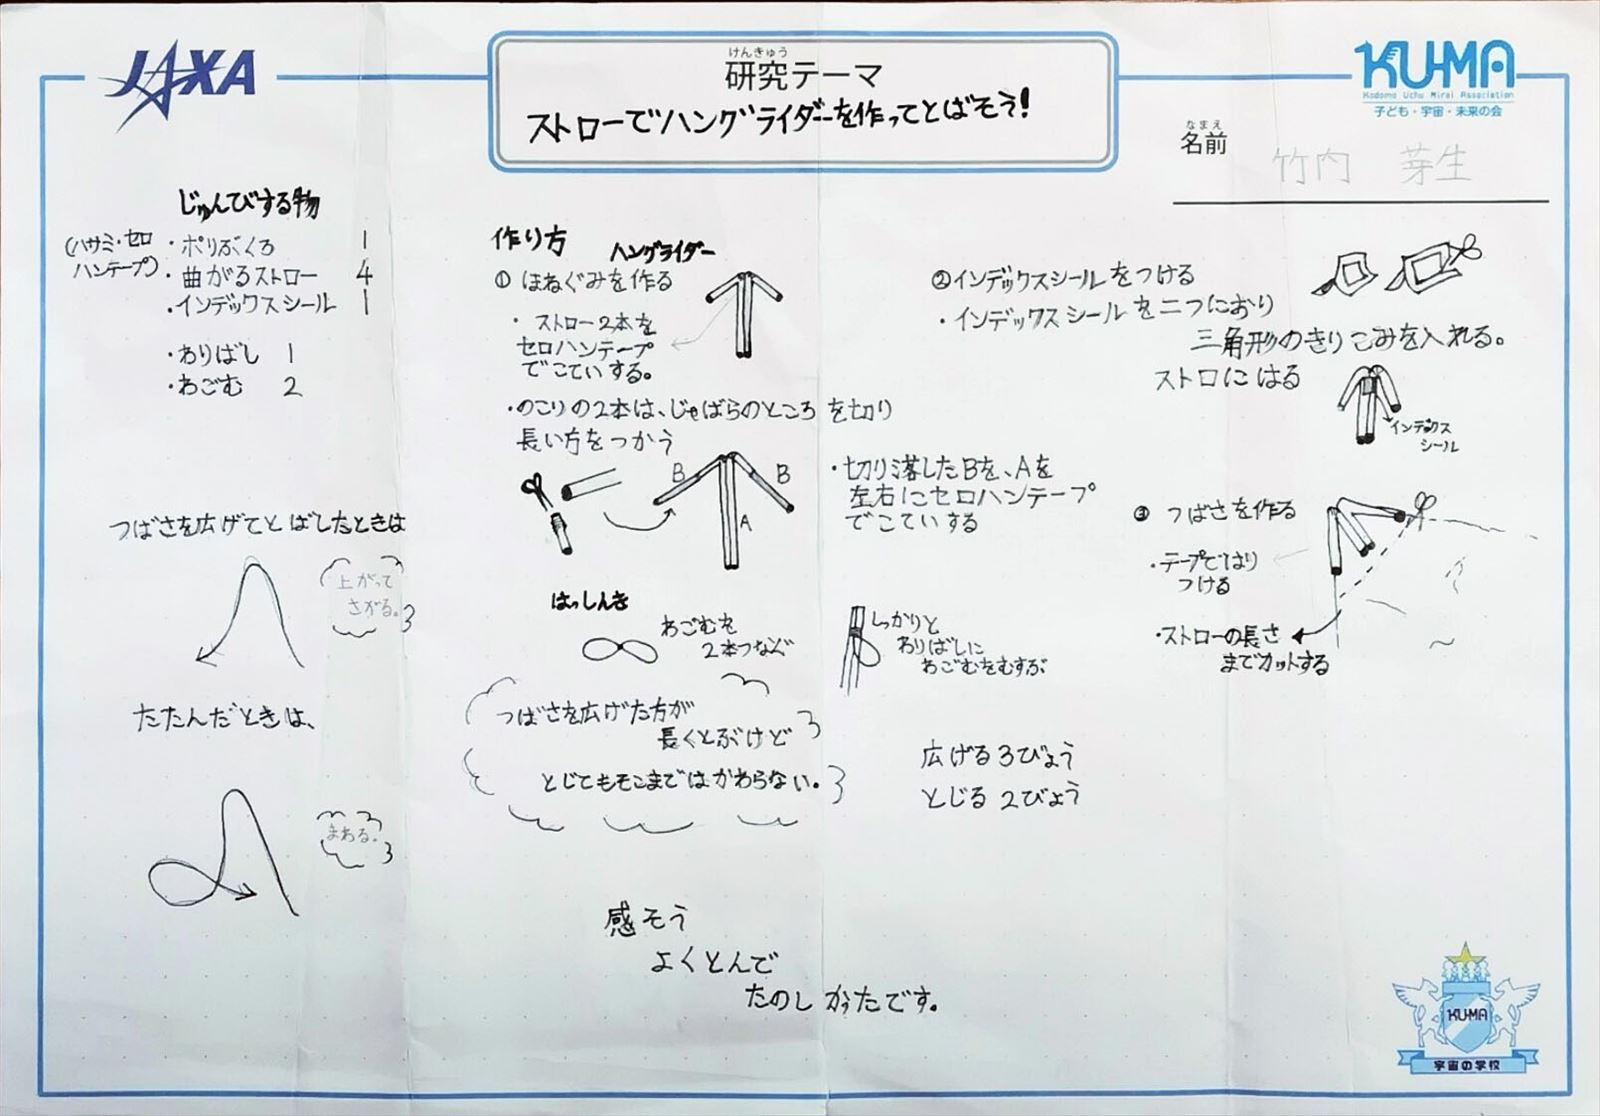 JAXA
けんきゅう
研究テーマ
ストローでハングライダーを作ってとばそう!
KU-MA
Kodomo Uchu Mirai Association
子ども・宇宙・未来の会
なまえ
名前
竹内 芽生
じゅんびする物
(ハサミ・セロ
ハンテープ)
・ポリぶくろ 1
・曲がるストロー 4
・インデックスシール 1
・わりばし 1
・わごむ 2
つばさを広げてとばしたときは
上がって
さがる。
たたんだときは、
まわる。
作り方 ハングライダー
① ほねぐみを作る
・ストロー2本を
セロハンテープ
でこていする。
・のこりの2本は、じゃばらのところを切り
長い方をつかう
B
B
A
・切り落したBを、Aを
左右にセロハンテープ
でこていする
はっしんき
わごむを
2本つなぐ
しっかりと
わりばしに
わごむをむすぶ
つばさを広げた方が
長くとぶけど
とじてもそこまではかわらない。
広げる3びょう
とじる2びょう
②インデックスシールをつける
・インデックスシールを二つにおり
三角形のきりこみを入れる。
ストロにはる
インデックス
シール
③ つばさを作る
・テープではり
つける
・ストローの長さ
までカットする
感そう
よくとんで
たのしかったです。
KU-MA
宇宙の学校